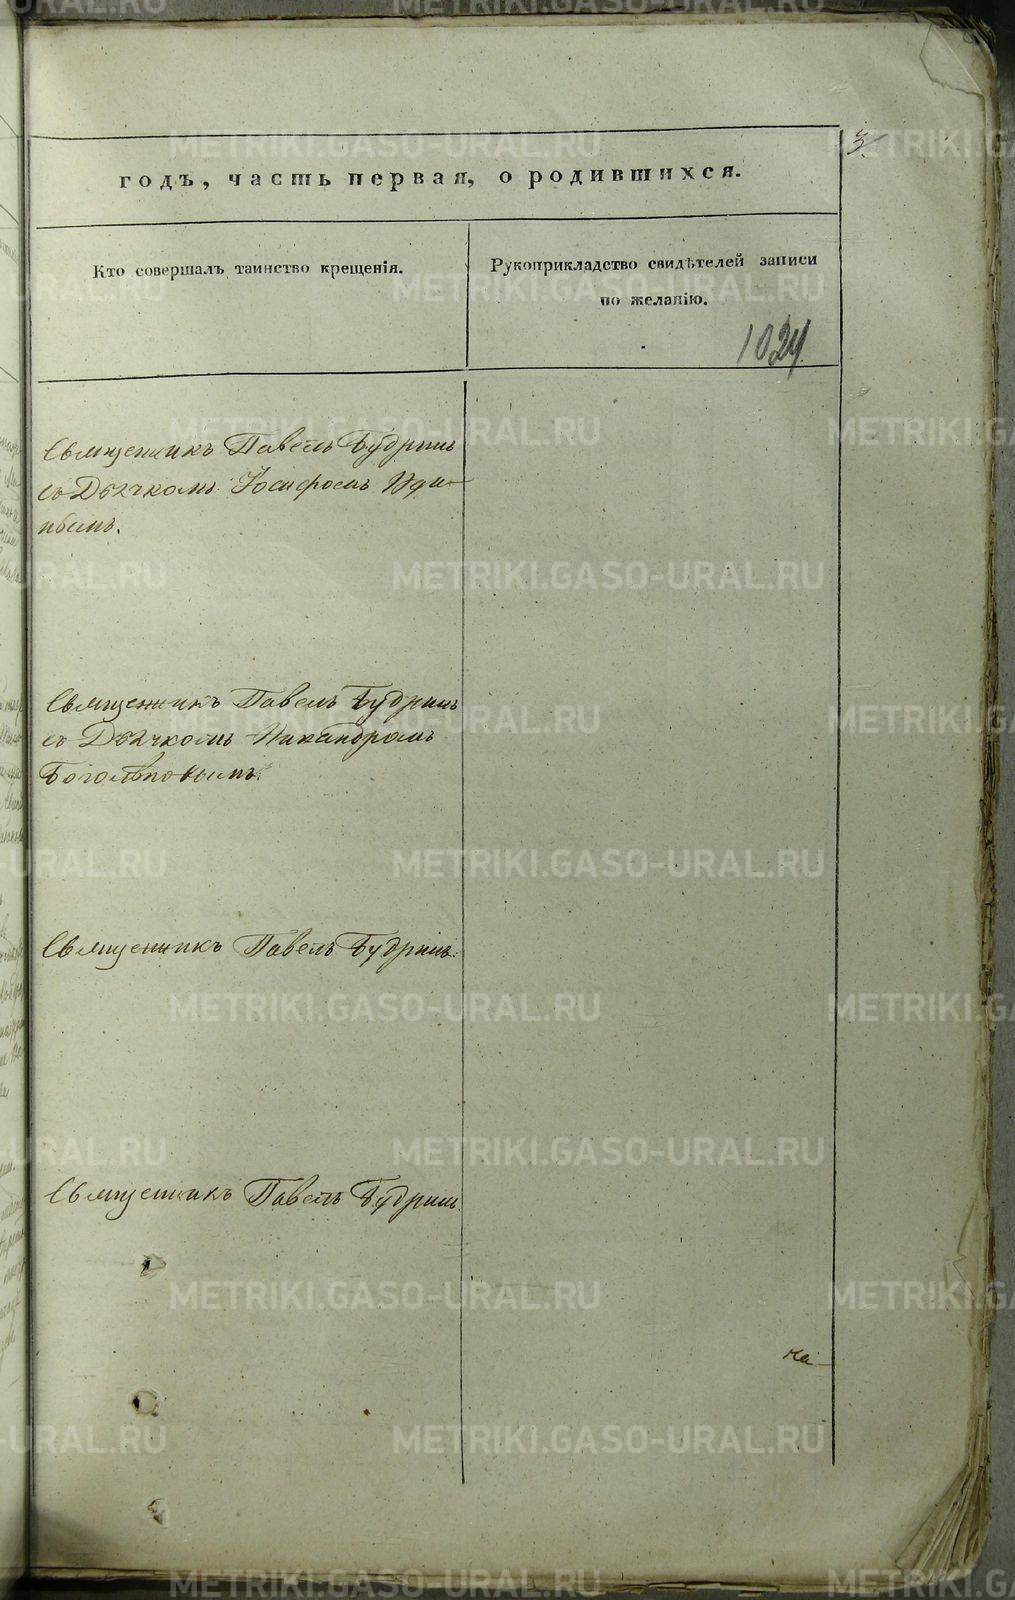 3.
годъ, часть первая, о родившихся.
Кто совершалъ таинство крещенія.
Рукоприкладство свидѣтелей записи
по желанію.
1024
Священникъ Павелъ Будринъ
съ Дьячкомъ Іосифомъ
Священникъ Павелъ Будринъ
съ Дьячкомъ Никандромъ
Боголѣповымъ.
Священникъ Павелъ Будринъ.
Священникъ Павелъ Будринъ.
На
METRIKI.GASO-URAL.RU